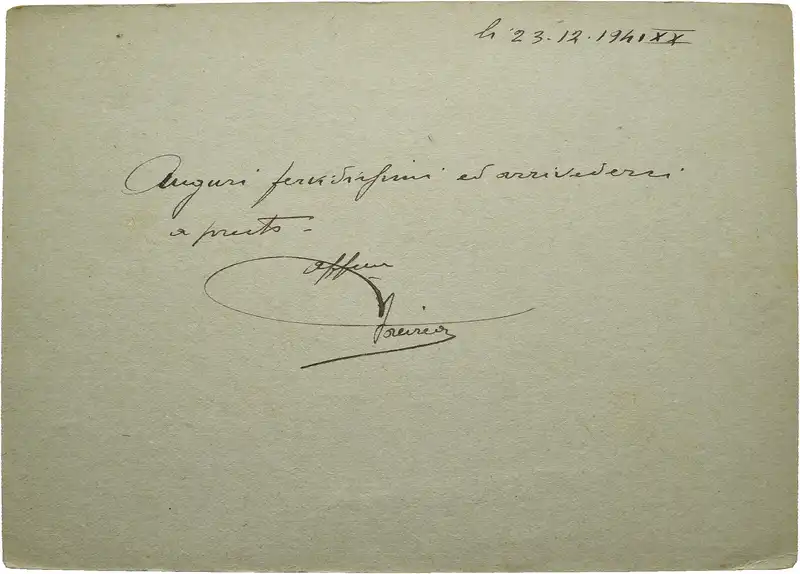 li 23.12.1941 XX
Auguri fervidissimi ed arrivederci
a presto -
affmo